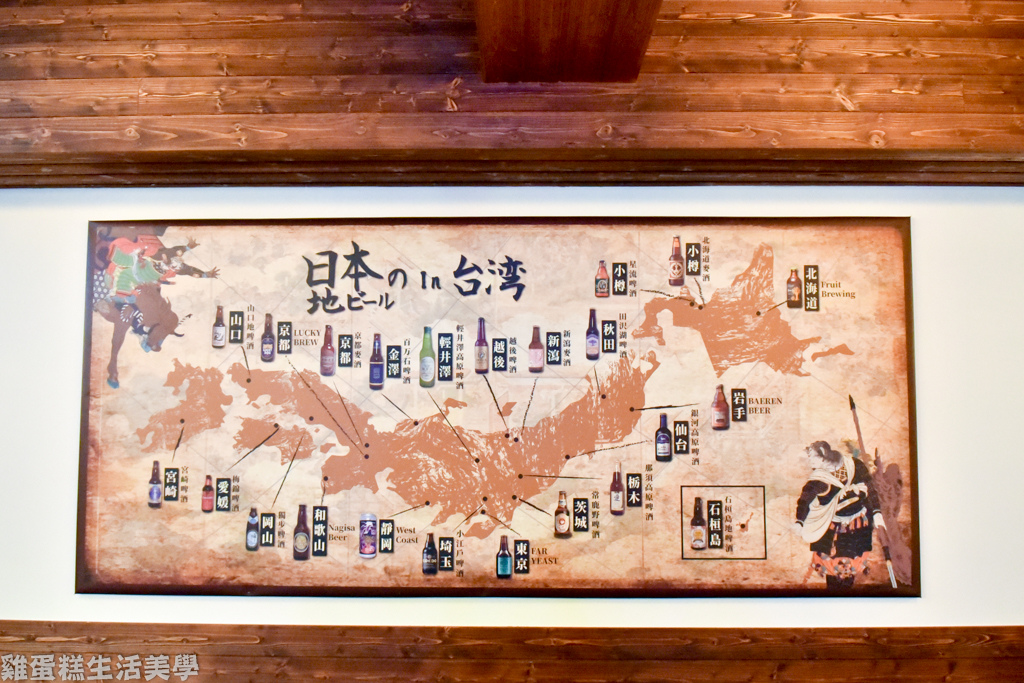 日本の
地ビール
In 台湾
小樽
星流啤酒
小樽
北海道麥酒
北海道
Fruit
Brewing
山口
山口地啤酒
京都
LUCKY
BREW
京都
京都麥酒
金澤
百万石啤酒
輕井澤
輕井澤高原啤酒
越後
越後啤酒
新潟
新潟麥酒
秋田
田沢湖啤酒
岩手
BAEREN
BEER
仙台
銀河高原啤酒
宮崎
宮崎啤酒
愛媛
梅錦啤酒
岡山
獨步啤酒
和歌山
Nagisa
Beer
靜岡
West
Coast
埼玉
小江戶啤酒
東京
FAR
YEAST
茨城
常鹿野啤酒
栃木
那須高原啤酒
石垣島
石垣島地啤酒
雞蛋糕生活美學